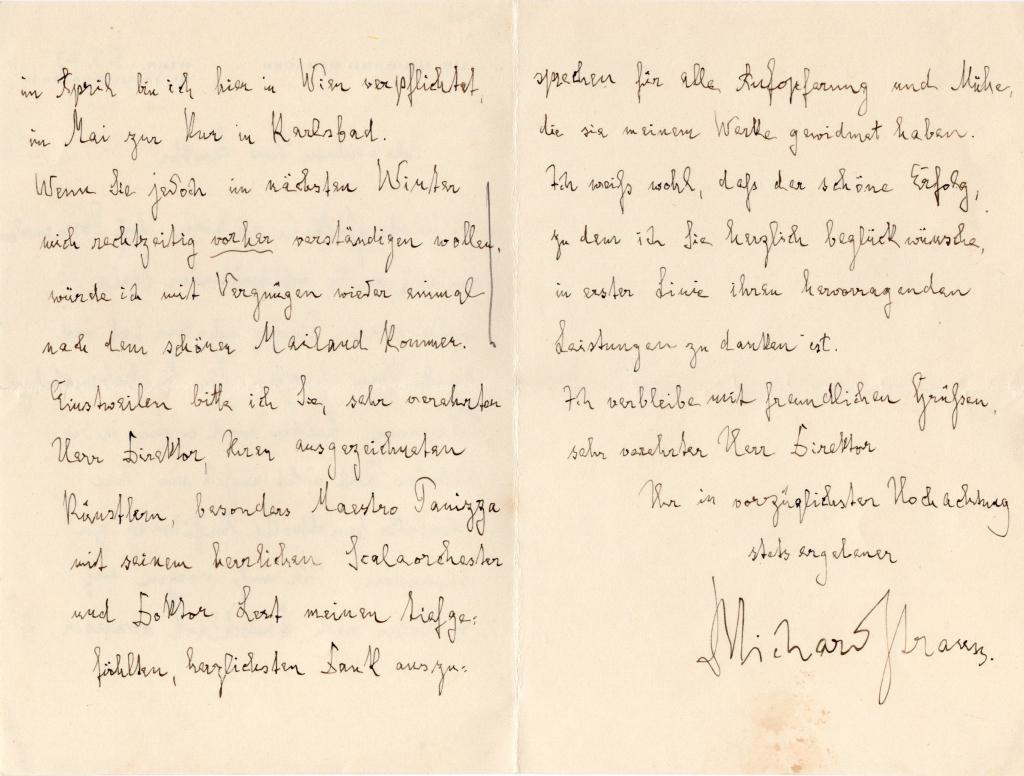 im April bin ich hier in Wien verpflichtet,
im Mai zur Kur in Karlsbad.
Wenn Sie jedoch im nächsten Winter
mich rechtzeitig vorher verständigen wollen,
würde ich mit Vergnügen wieder einmal
nach dem schönen Mailand kommen.
Einstweilen bitte ich Sie, sehr verehrter
Herr Direktor, Ihren ausgezeichneten
Künstlern, besonders Maestro Panizza
mit seinem herrlichen Scalaorchester
und Doktor Lert meinen tiefge=
fühlten, herzlichsten Dank auszu=
sprechen für alle Aufopferung und Mühe,
die sie meinem Werke gewidmet haben.
Ich weiß wohl, daß der schöne Erfolg,
zu dem ich Sie herzlich beglückwünsche,
in erster Linie ihren hervorragenden
Leistungen zu danken ist.
Ich verbleibe mit freundlichen Grüßen,
sehr verehrter Herr Direktor
Ihr in vorzüglichster Hochachtung
stets ergebener
Richard Strauss.